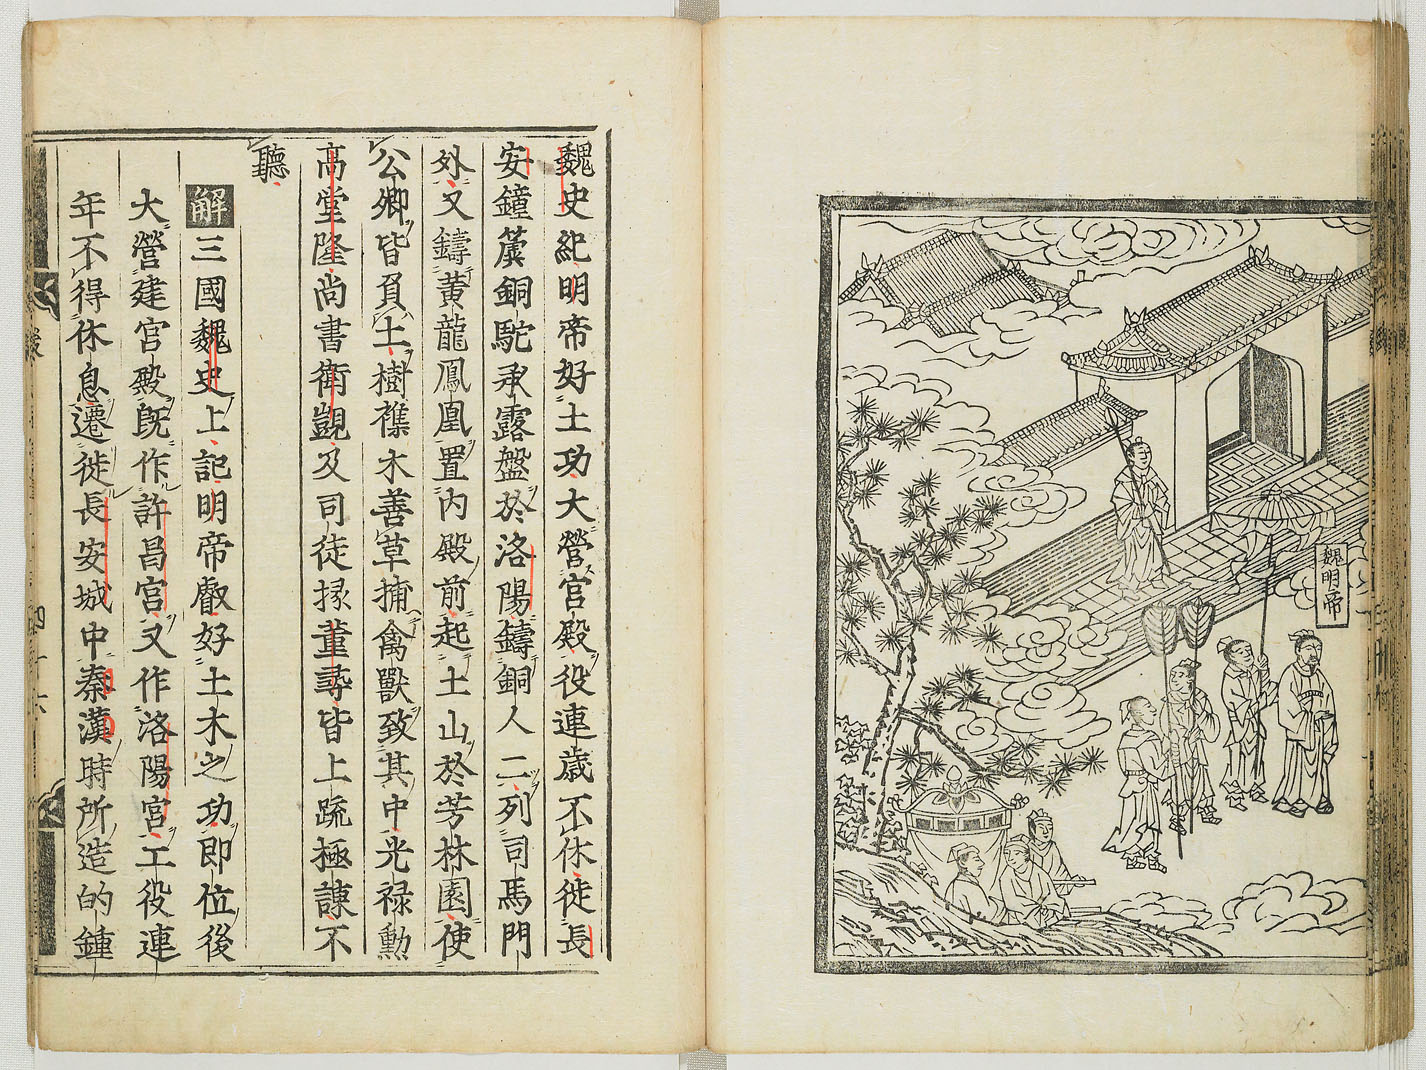 魏明帝
魏史紀明帝好土功大營宮殿役連歲不休徙長
安鐘簴銅駝承露盤於洛陽鑄銅人二列司馬門
外又鑄黃龍鳳凰置內殿前起土山於芳林園使
公卿皆負土樹雜木善草捕禽獸致其中光祿勳
高堂隆尚書衛覬及司徒掾董尋皆上疏極諫不
聽
解三國魏史上記明帝叡好土木之功即位後
大營建宮殿旣作許昌宮又作洛陽宮工役連
年不得休息遷徙長安城中秦漢時所造的鍾